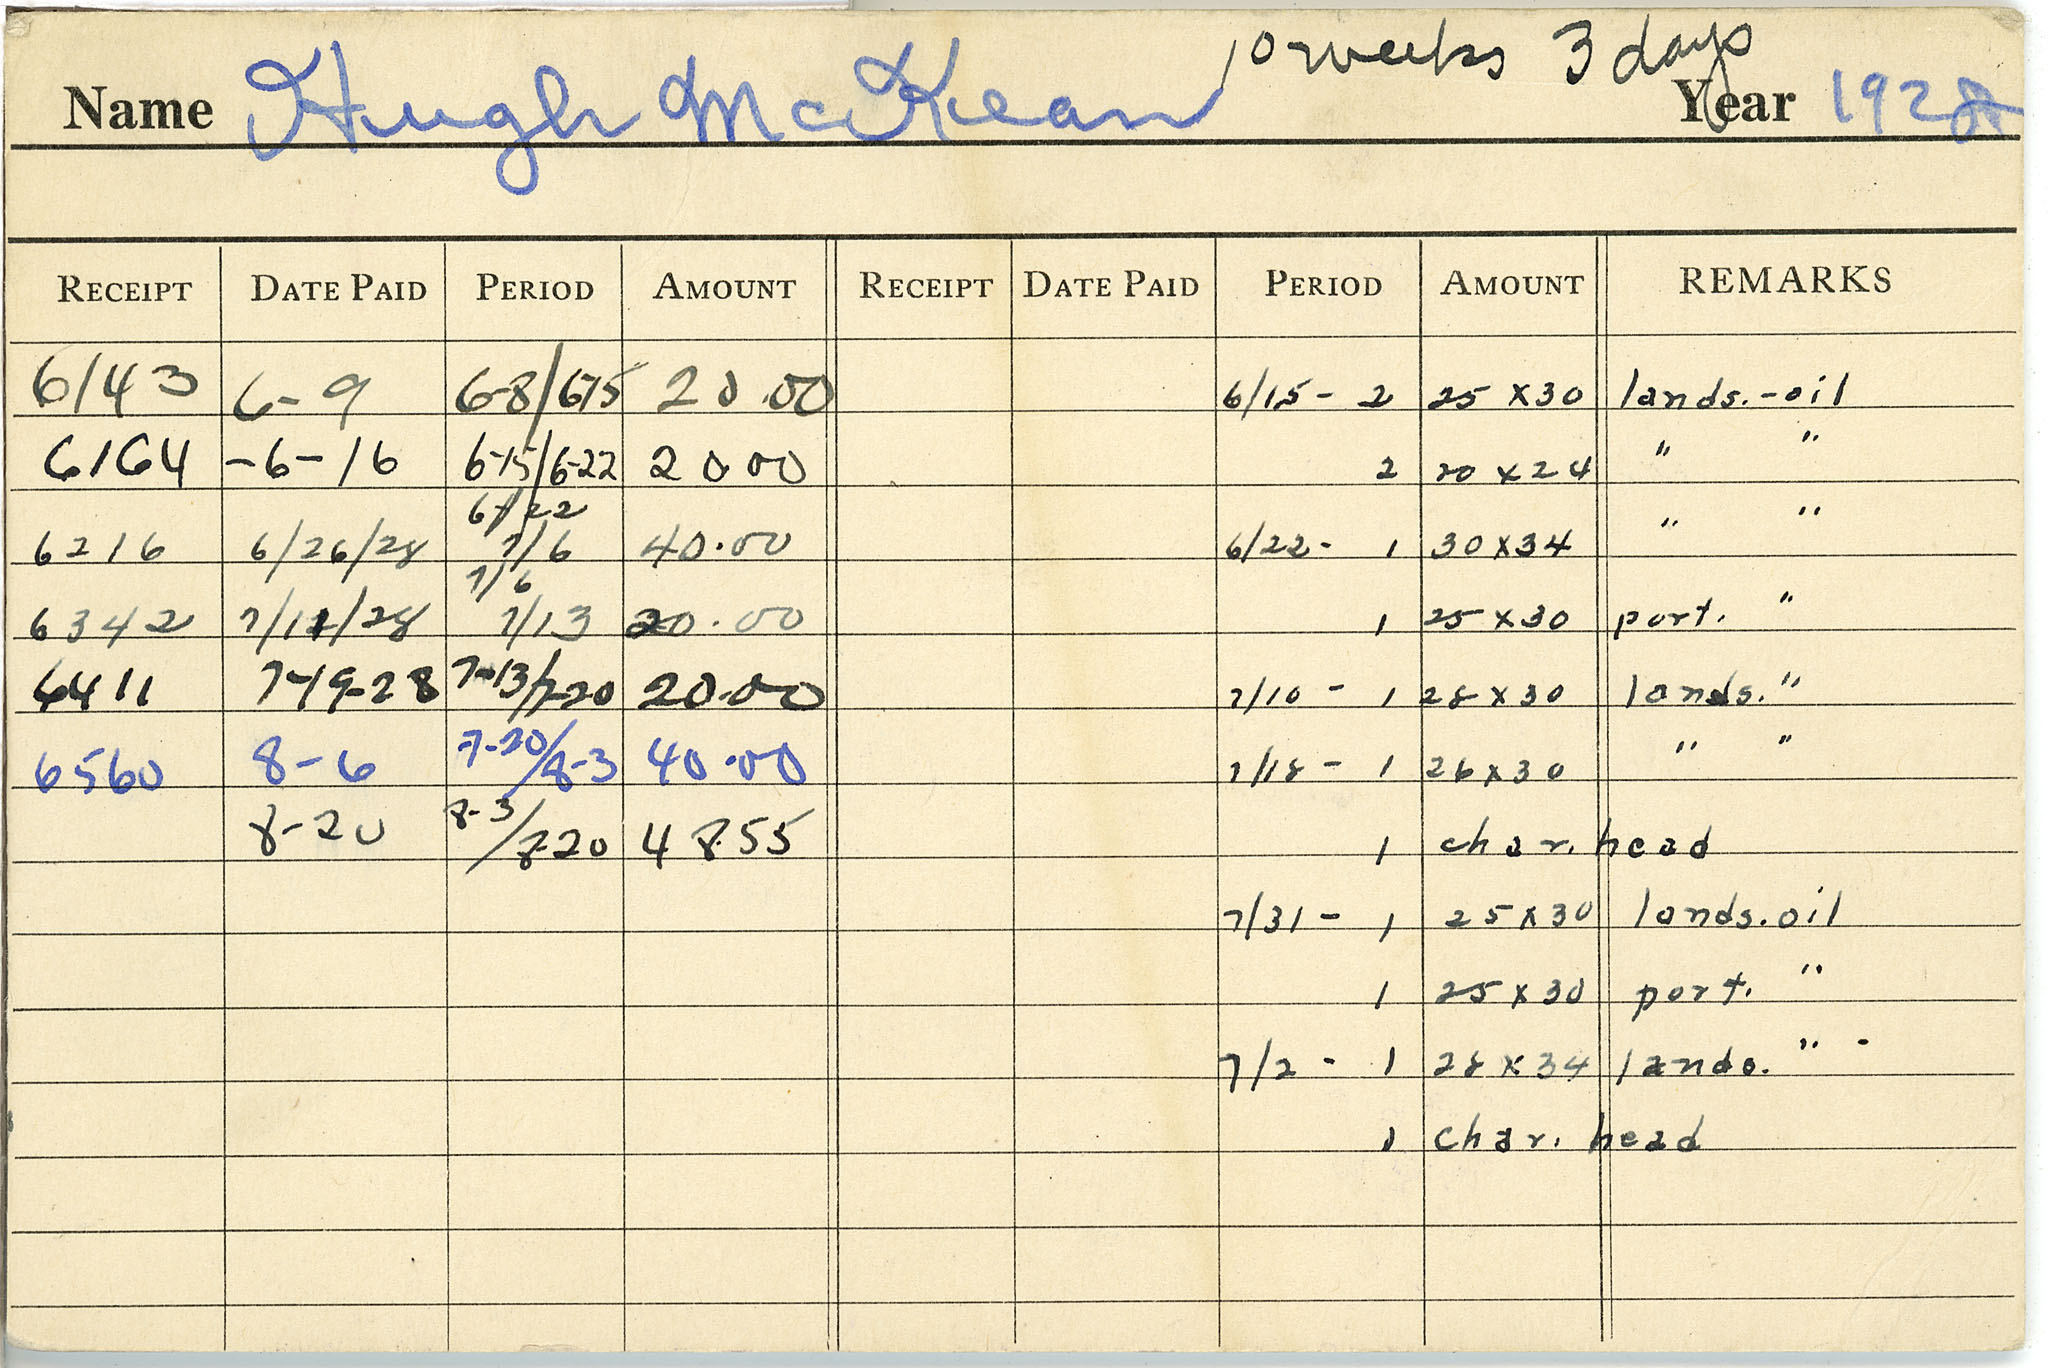 10 weeks 3 days
Name Hugh McKean Year 1928
RECEIPT DATE PAID PERIOD AMOUNT RECEIPT DATE PAID PERIOD AMOUNT REMARKS
6143 6-9 6-8/6-15 20.00 6/15 - 2 25 x 30 lands. - oil
6164 -6-16 6-15/6-22 20.00 2 20 x 24 " "
6/22
6216 6/26/28 7/6 40.00 6/22 - 1 30 x 34 " "
7/6
6342 7/11/28 7/13 20.00 1 25 x 30 port. "
6411 7-19-28 7-13/7-20 20.00 7/10 - 1 28 x 30 lands. "
6560 8-6 7-20/8-3 40.00 7/18 - 1 26 x 30 " "
8-20 8-3/8-20 48.55 1 char. head
7/31 - 1 25 x 30 lands. oil
1 25 x 30 port. "
7/2 - 1 28 x 34 lands. " -
1 char. head